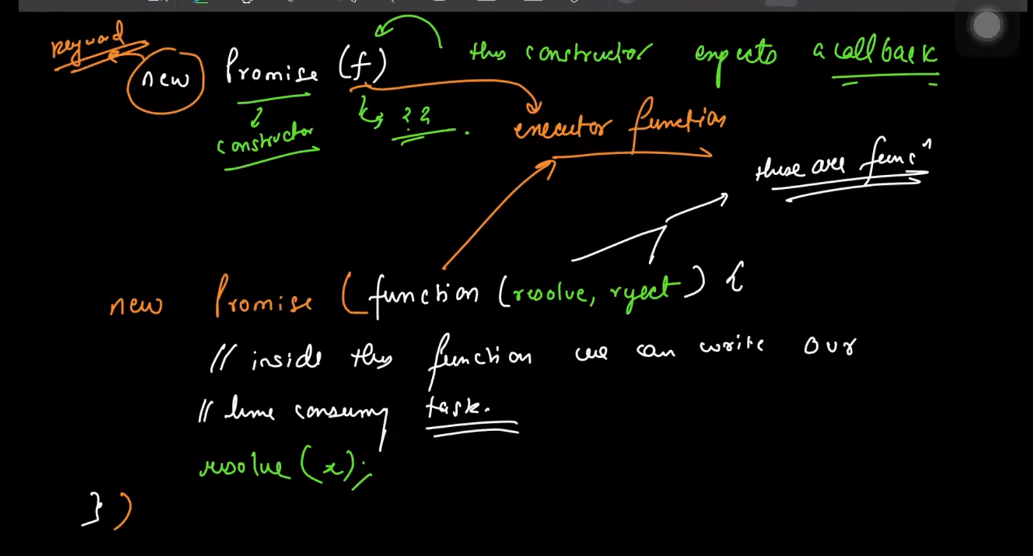 keyword
new Promise (f) this constructor expects a callback
constructor ?? executor function
these are funcⁿ
new Promise (function (resolve, reject) {
// inside this function we can write our
// time consuming task.
resolve (x);
})